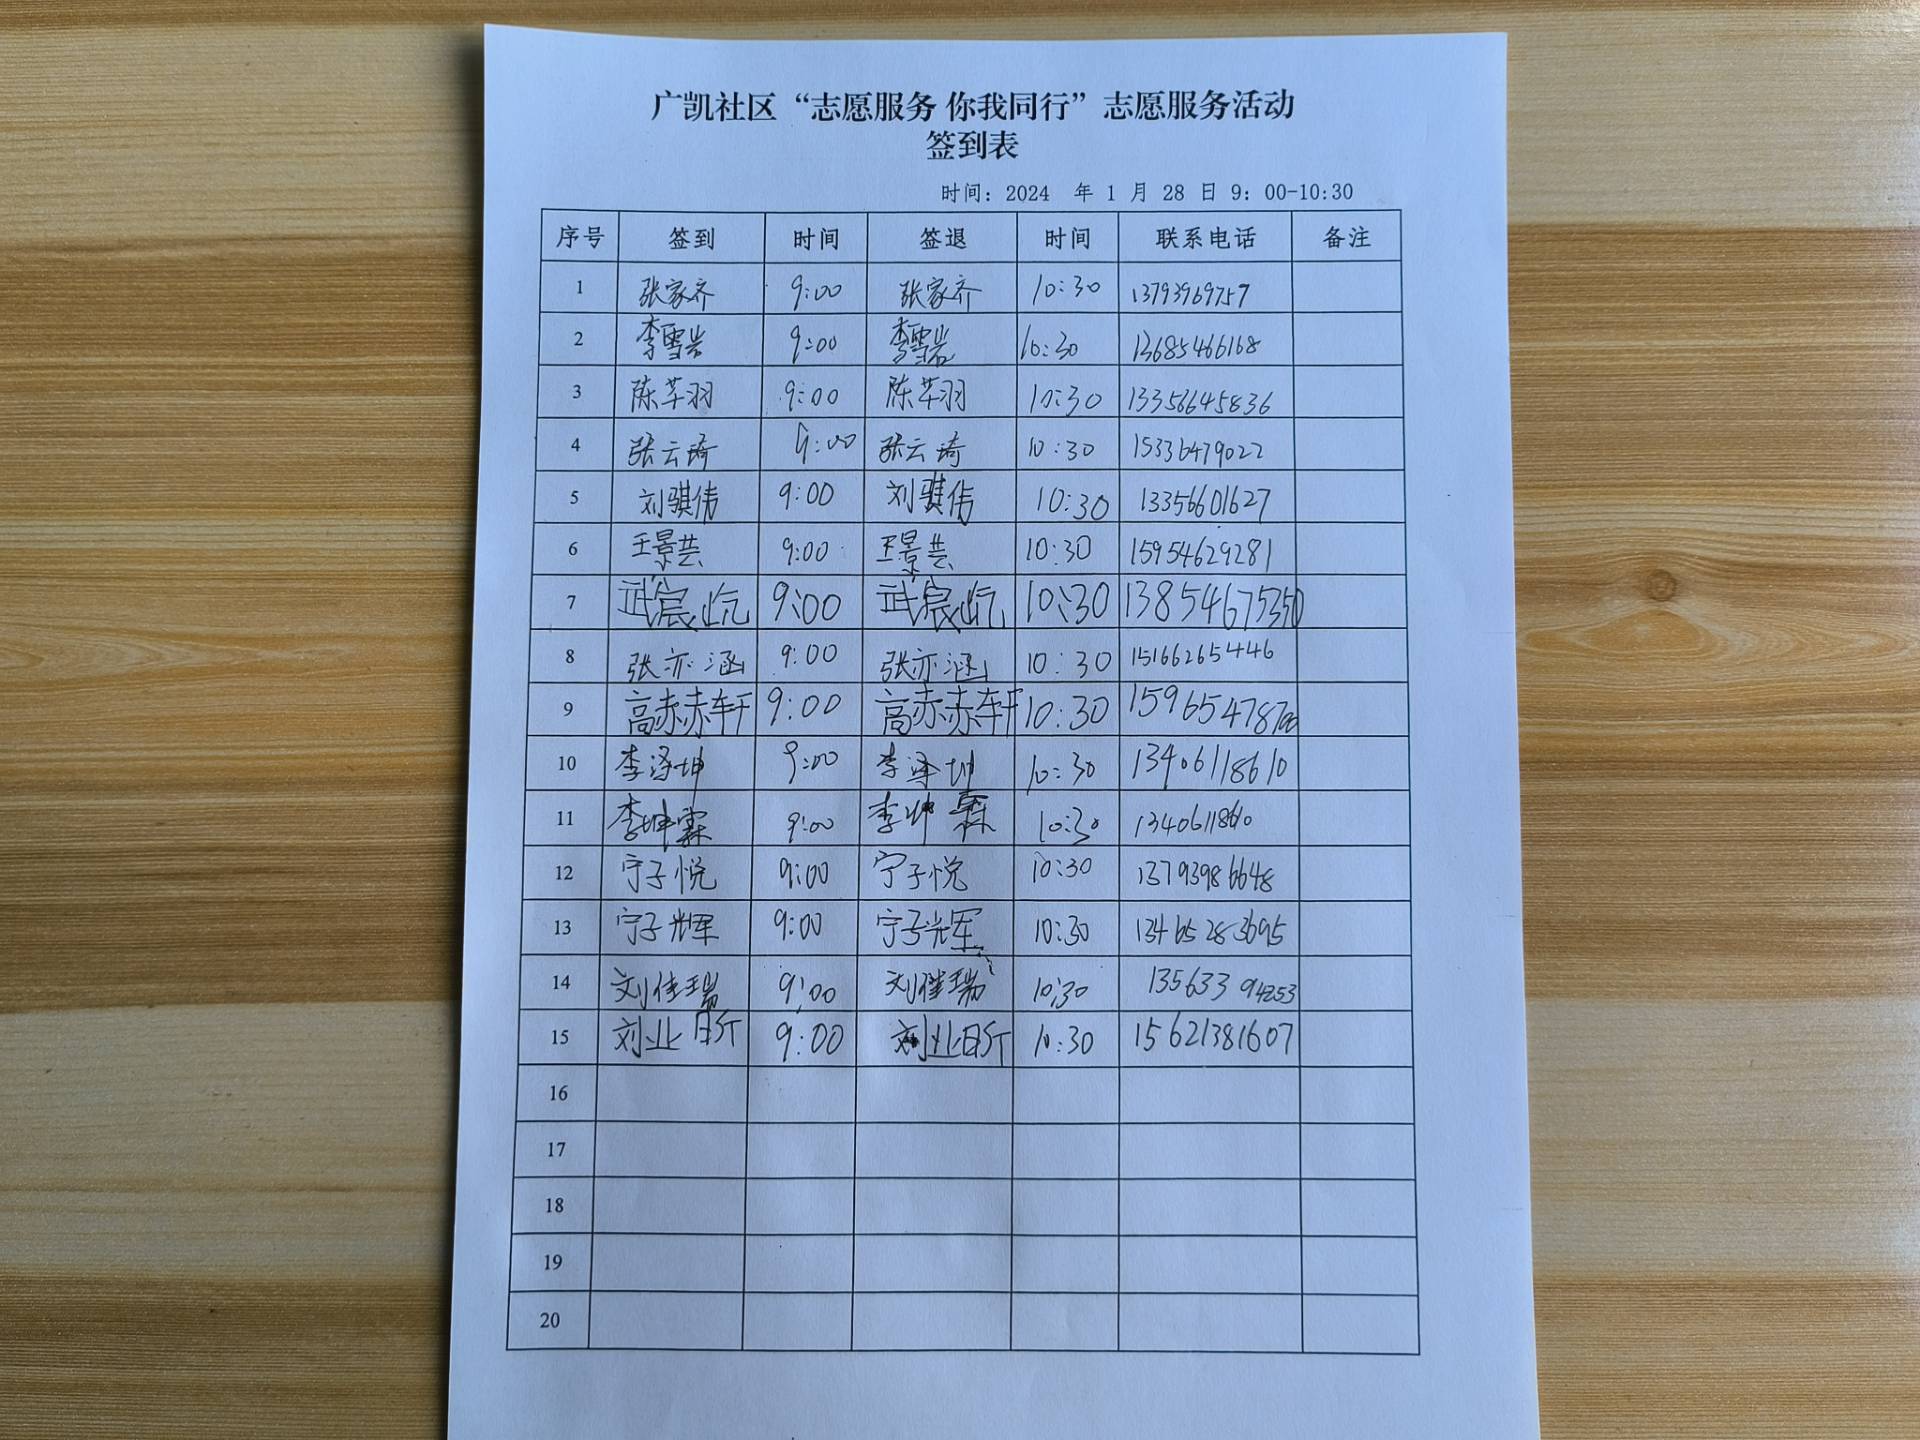 广凯社区“志愿服务 你我同行”志愿服务活动
签到表
时间：2024 年 1 月 28 日 9：00-10:30
序号 签到 时间 签退 时间 联系电话 备注
1 张家齐 9:00 张家齐 10:30 13793969757
2 李雪岩 9:00 李雪岩 10:30 13685466168
3 陈芊羽 9:00 陈芊羽 10:30 13356645836
4 张云琦 9:00 张云琦 10:30 15336479022
5 刘骐伟 9:00 刘骐伟 10:30 13356601627
6 王景芸 9:00 王景芸 10:30 15954629281
7 武宸屹 9:00 武宸屹 10:30 13854675350
8 张亦涵 9:00 张亦涵 10:30 15166265446
9 高赫轩 9:00 高赫轩 10:30
10 李泽坤 9:00 李泽坤 10:30 13406118610
11 李坤霖 9:00 李坤霖 10:30 13406118610
12 宁子悦 9:00 宁子悦 10:30 13793986648
13 宁子辉 9:00 宁子辉 10:30 13465283695
14 刘佳瑞 9:00 刘佳瑞 10:30 13563394253
15 刘业昕 9:00 刘业昕 10:30 15621381607
16
17
18
19
20